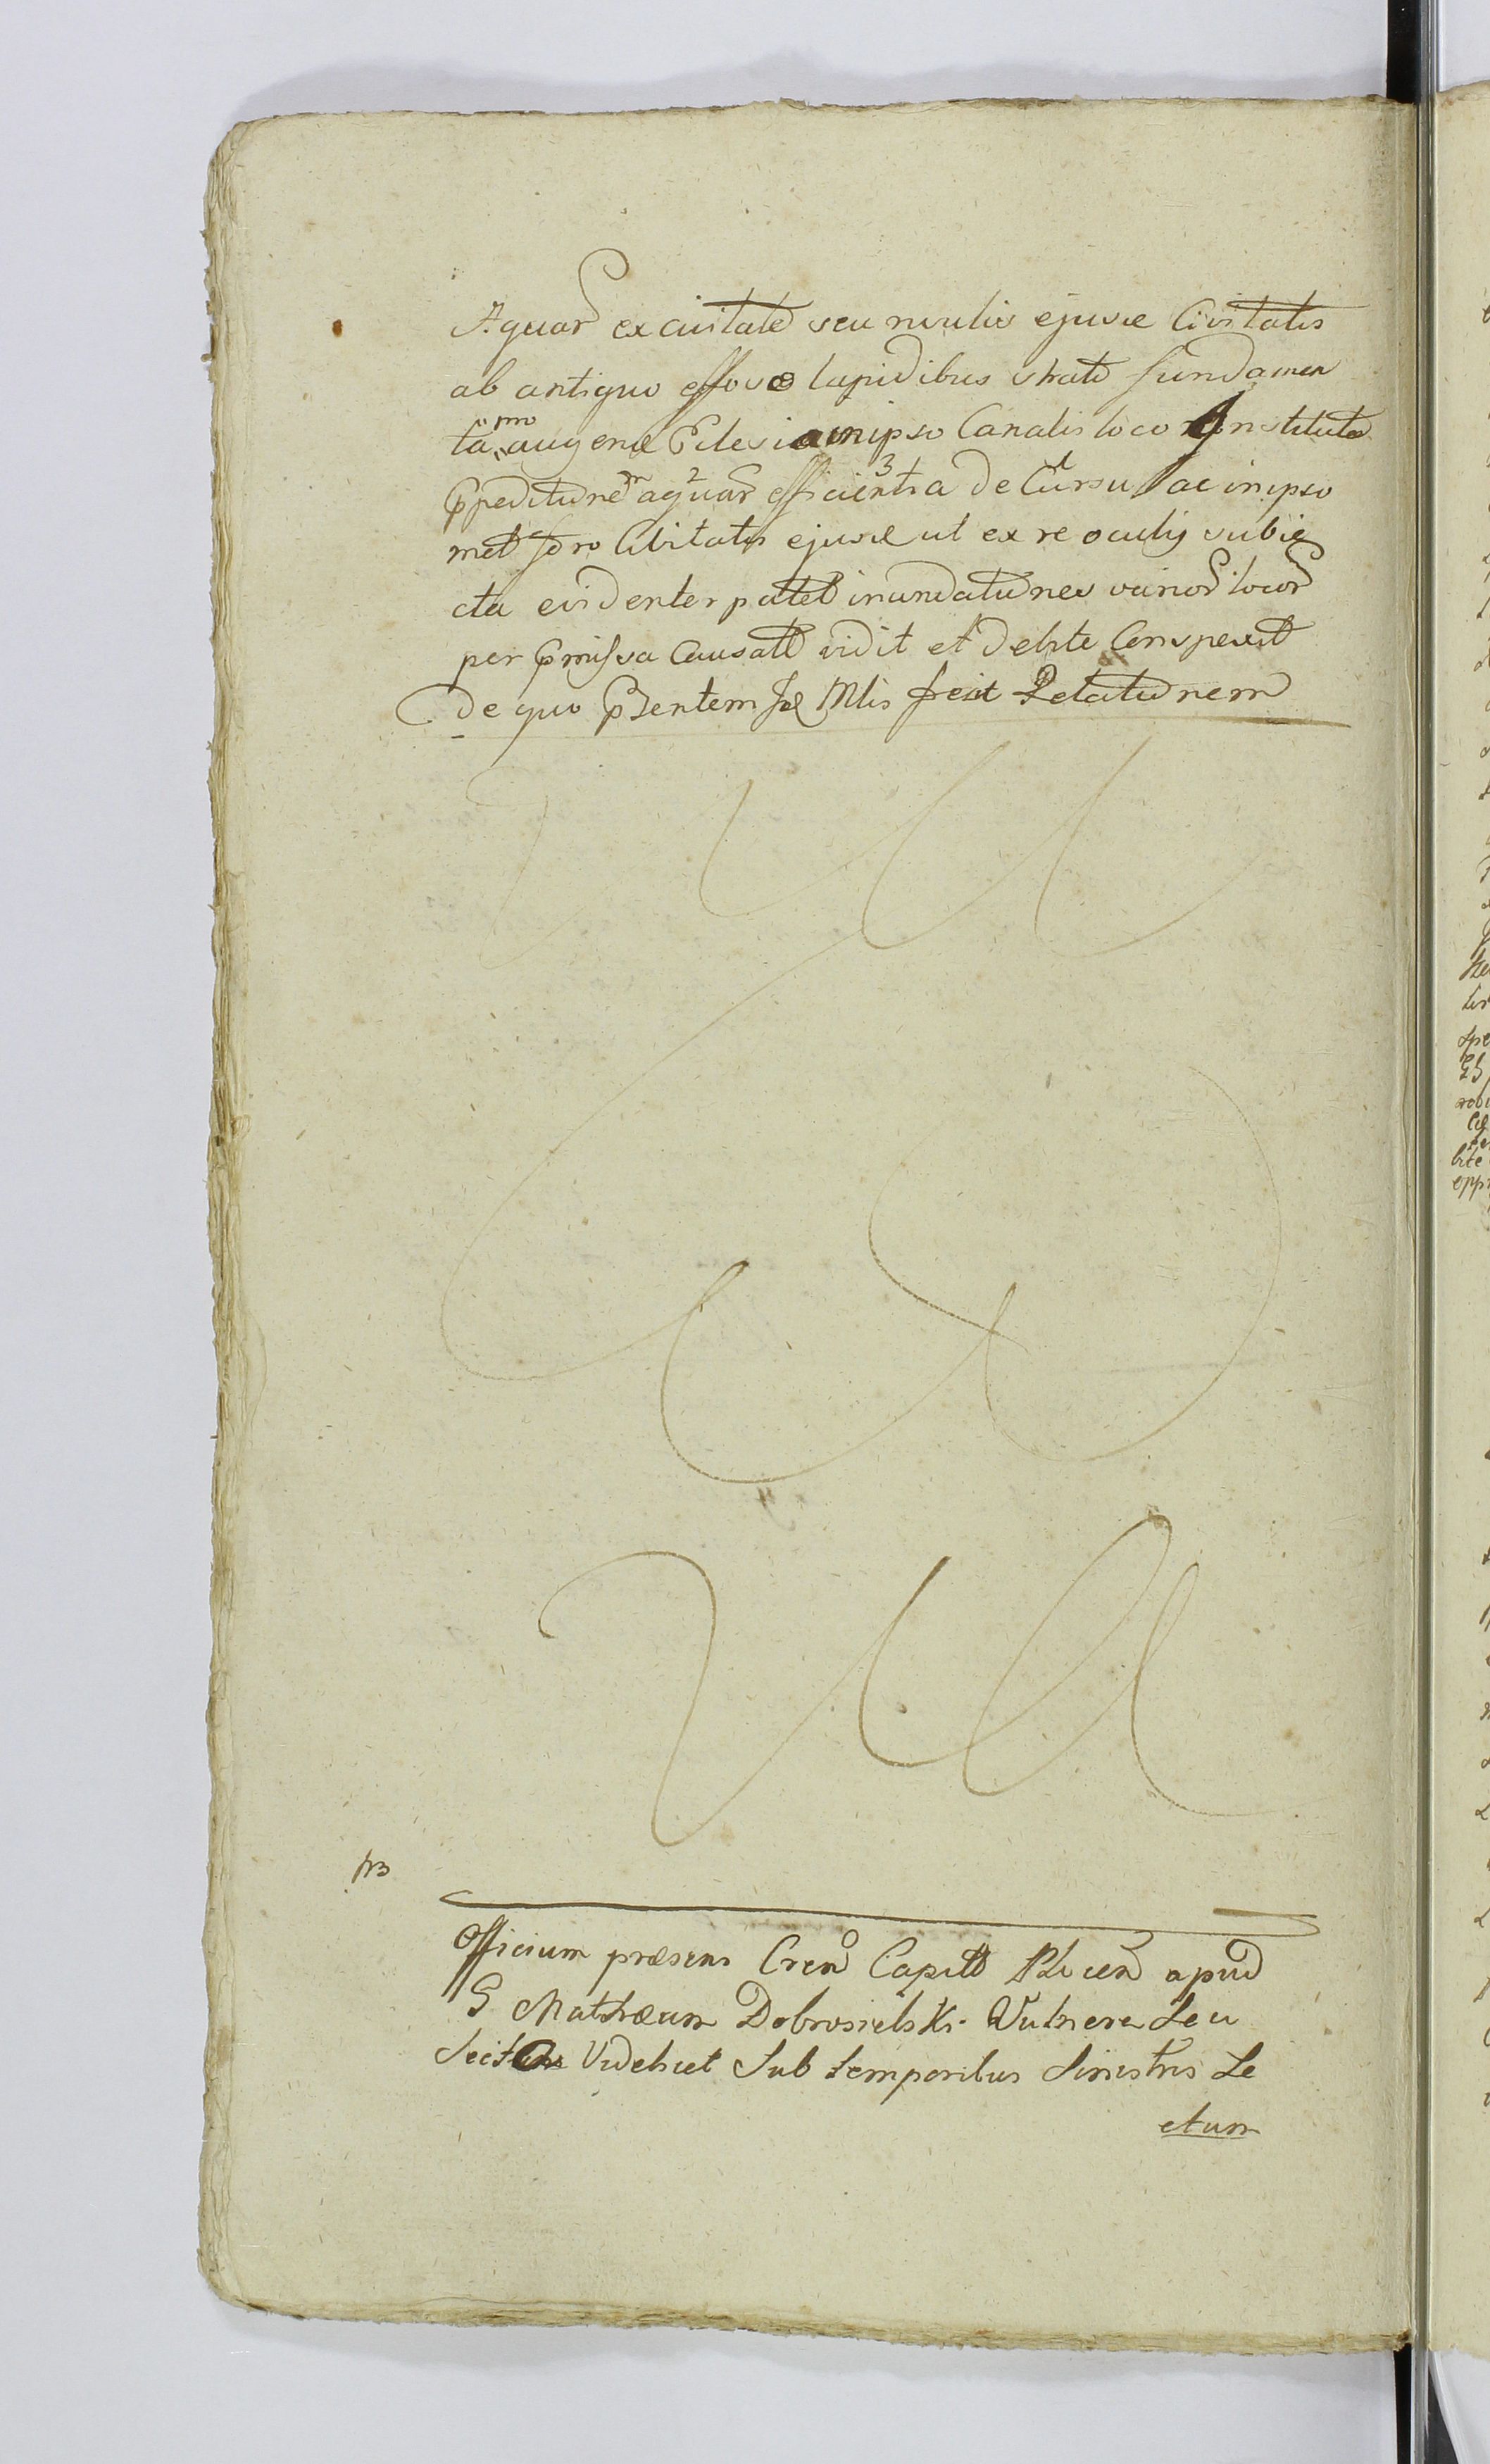 Aquar ex civitate seu rivulis ejusd Civitatis
ab antiquo effosso lapidibus strato fundamen
ta pro augend Eclesia in ipso Canalis loco Constituta
Ppeditionem aquar efficientia de Cursu ac in ipso
met foro Civitatis ejusd ut ex re oculis subie
cta evidenter patet inundationes varior locor
per Pmissa Causat vidit et debite Conspexit
De quo Psentem fecit Relationem
Officium præsens Cren Capitt apud
G Mathæum Dobrosielski Vulnera Seu
Videlicet Sub temporibus Sinistris Le
ctum